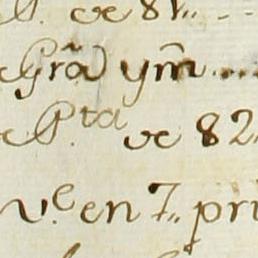 P. de 81..
Grã ym̃....
Pta de 82
v.e en 7.. pri